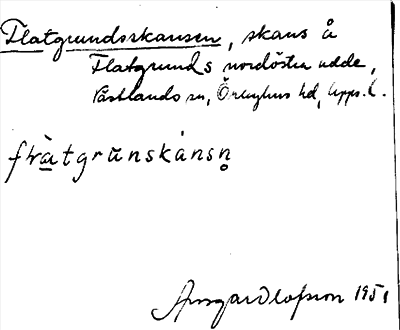 Flatgrundsskansen, skans å
Flatgrunds nordöstra udde,
Västlands sn, Örbyhus hd, Upps. l.
flàtgrùnskánsn̥
Ansgar Olofsson 1951